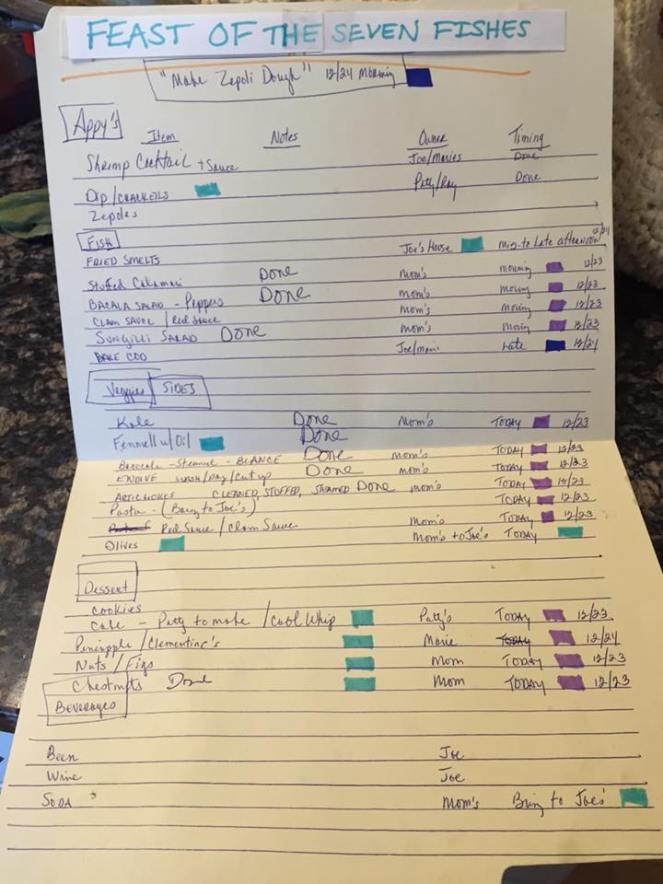 FEAST OF THE SEVEN FISHES
"Make Zepoli Dough" 12/24 Morning
Appy's
Item Notes Owner Timing
Shrimp Cocktail + Sauce Joe/Maries Done
Dip/CRACKERS Patty/Ray Done
Zepoles
Fish
FRIED SMELTS Joe's House Mid-to Late afternoon 12/24
Stuffed Calamari Done Mom's morning 12/23
BACALA SALAD - Peppers Done Mom's morning 12/23
CLAM SAUCE / Red Sauce Mom's morning 12/23
SUNGILLI SALAD Done Mom's morning 12/23
BAKE COD Joe/mom Late 12/24
Veggies SIDES
Kale Done Mom's TODAY 12/23
Fennell w/Oil Done
Broccoli - Steamed - BLANCE Done Mom's TODAY 12/23
ENDIVE WASH/DRY/CUT UP Done Mom's TODAY 12/23
ARTICHOKES CLEANED, STUFFED, STEAMED DONE Mom's TODAY 12/23
Pasta - (Bring to Joe's) TODAY 12/23
Red Sauce / Clam Sauce Mom's TODAY 12/23
Olives Mom's to Joe's TODAY
Dessert
Cookies
Cake - Patty to make / Cool Whip Patty's TODAY 12/23
Pineapple / Clementine's Marie TODAY 12/24
Nuts / Figs Mom TODAY 12/23
Chestnuts Done Mom TODAY 12/23
Beverages
Beer Joe
Wine Joe
SODA Mom's Bring to Joe's